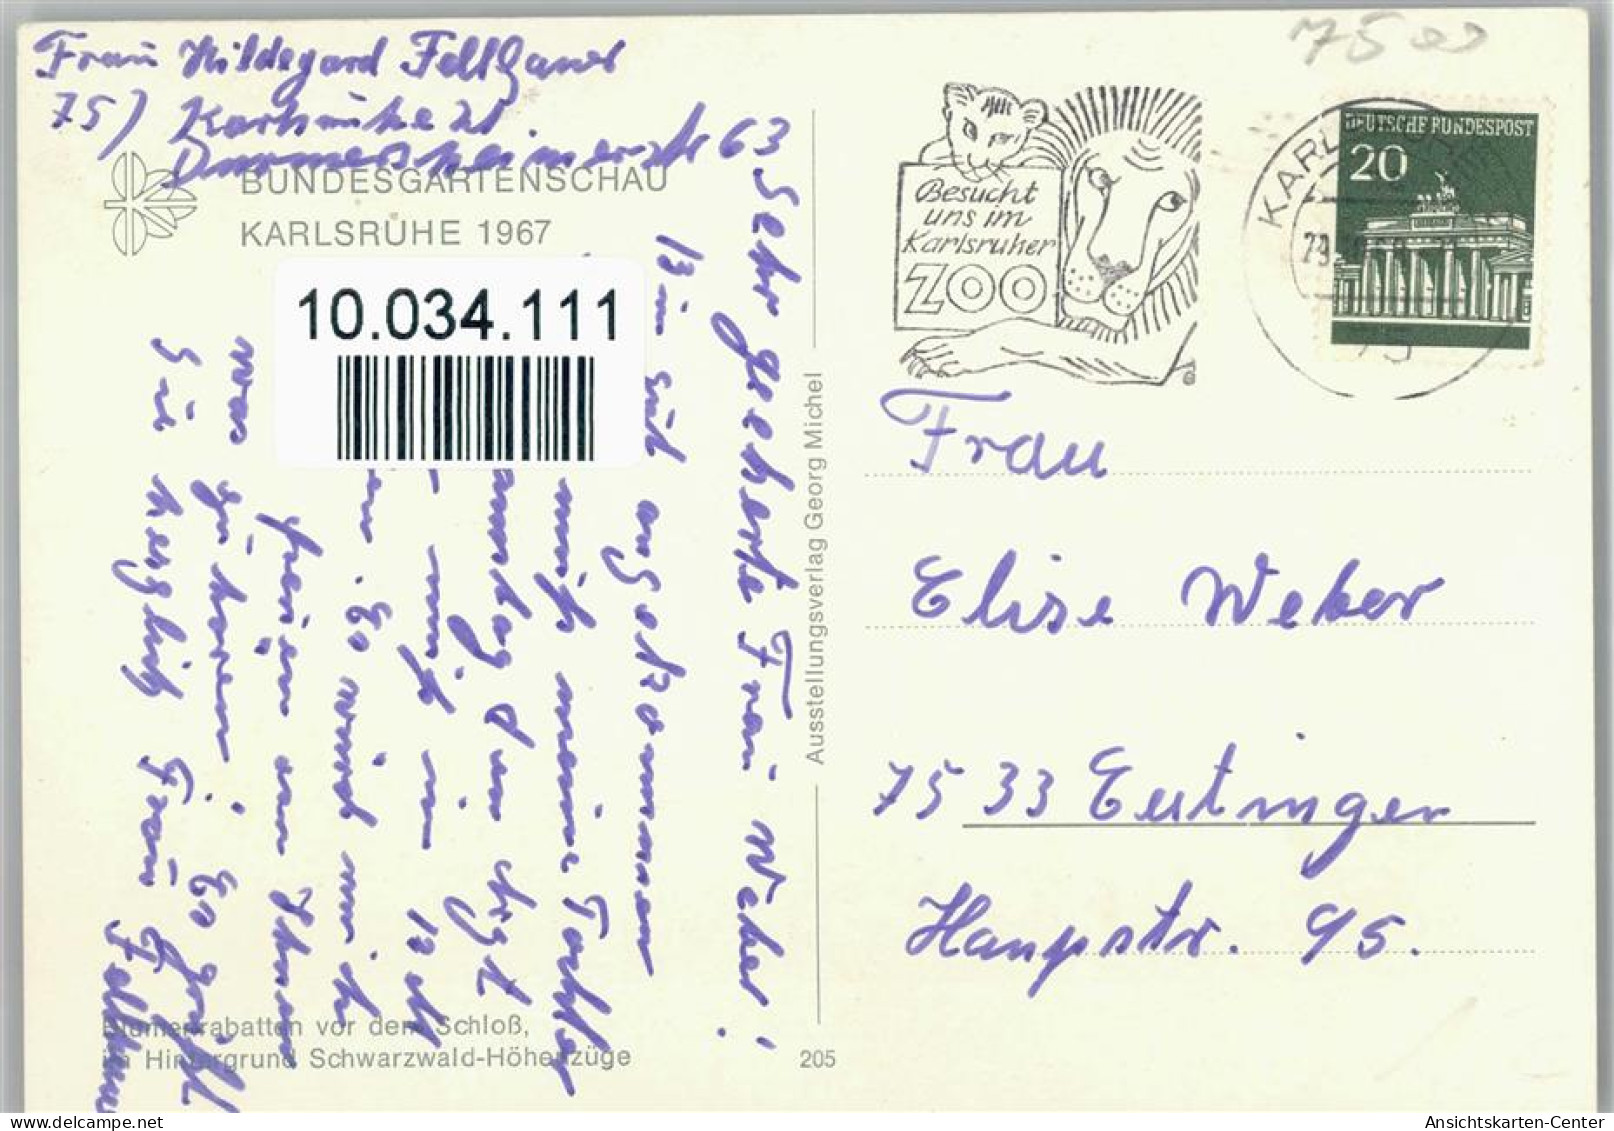 7500
Frau Hildegard
75) Karlsruhe 21
Durmersheimerstr 63
BUNDESGARTENSCHAU
KARLSRUHE 1967
10.034.111
Sehr geehrte Frau Weber!
Bin gut angekommen
mich meine Tochter
mich um 12
Es würd mich
freuen von Ihnen
was zu hören. Es grüßt
Sie herzlich Frau
Blumenrabatten vor dem Schloß,
im Hintergrund Schwarzwald-Höhenzüge
205
Ausstellungsverlag Georg Michel
Besucht
uns im
Karlsruher
ZOO
KARLSRUHE
75
DEUTSCHE BUNDESPOST
20
Frau
Elise Weber
7533 Eutingen
Haupstr. 95.
Ansichtskarten-Center